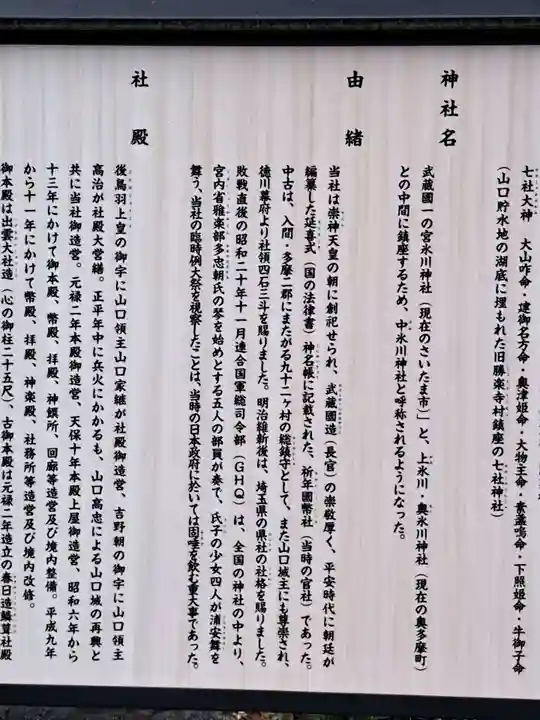 七社大神　大山咋命・建御名方命・奥津姫命・大物主命・素盞嗚命・下照姫命・牛御子命
（山口貯水地の湖底に埋もれた旧勝楽寺村鎮座の七社神社）
神社名
武蔵國一の宮氷川神社（現在のさいたま市）と、上氷川・奥氷川神社（現在の奥多摩町）
との中間に鎮座するため、中氷川神社と呼称されるようになった。
由緒
当社は崇神天皇の朝に創祀せられ、武蔵國造（長官）の崇敬厚く、平安時代に朝廷が
編纂した延喜式（国の法律書）神名帳に記載された、祈年國幣社（当時の官社）であった。
中古は、入間・多摩二郡にまたがる九十二ヶ村の総鎮守として、また山口城主にも尊崇され、
徳川幕府より社領四石三斗を賜りました。明治維新後は、埼玉県の県社の社格を賜りました。
敗戦直後の昭和二十年十一月連合国軍総司令部（GHQ）は、全国の神社の中より、
宮内省雅楽部多忠朝氏の琴を始めとする五人の部員が奏で、氏子の少女四人が浦安舞を
舞う、当社の臨時例大祭を視察したことは、当時の日本政府に於いては固唾を飲む重大事であった。
社殿
後鳥羽上皇の御宇に山口領主山口家継が社殿御造営、吉野朝の御宇に山口領主
高治が社殿大営繕。正平年中に兵火にかかるも、山口高忠による山口城の再興と
共に当社御造営。元禄二年本殿御造営、天保十年本殿上屋御造営、昭和六年から
十三年にかけて御本殿、幣殿、拝殿、神饌所、回廊等造営及び境内整備。平成九年
から十一年にかけて幣殿、拝殿、神楽殿、社務所等造営及び境内改修。
御本殿は出雲大社造（心の御柱二十五尺）、古御本殿は元禄二年造立の春日造鱗葺社殿